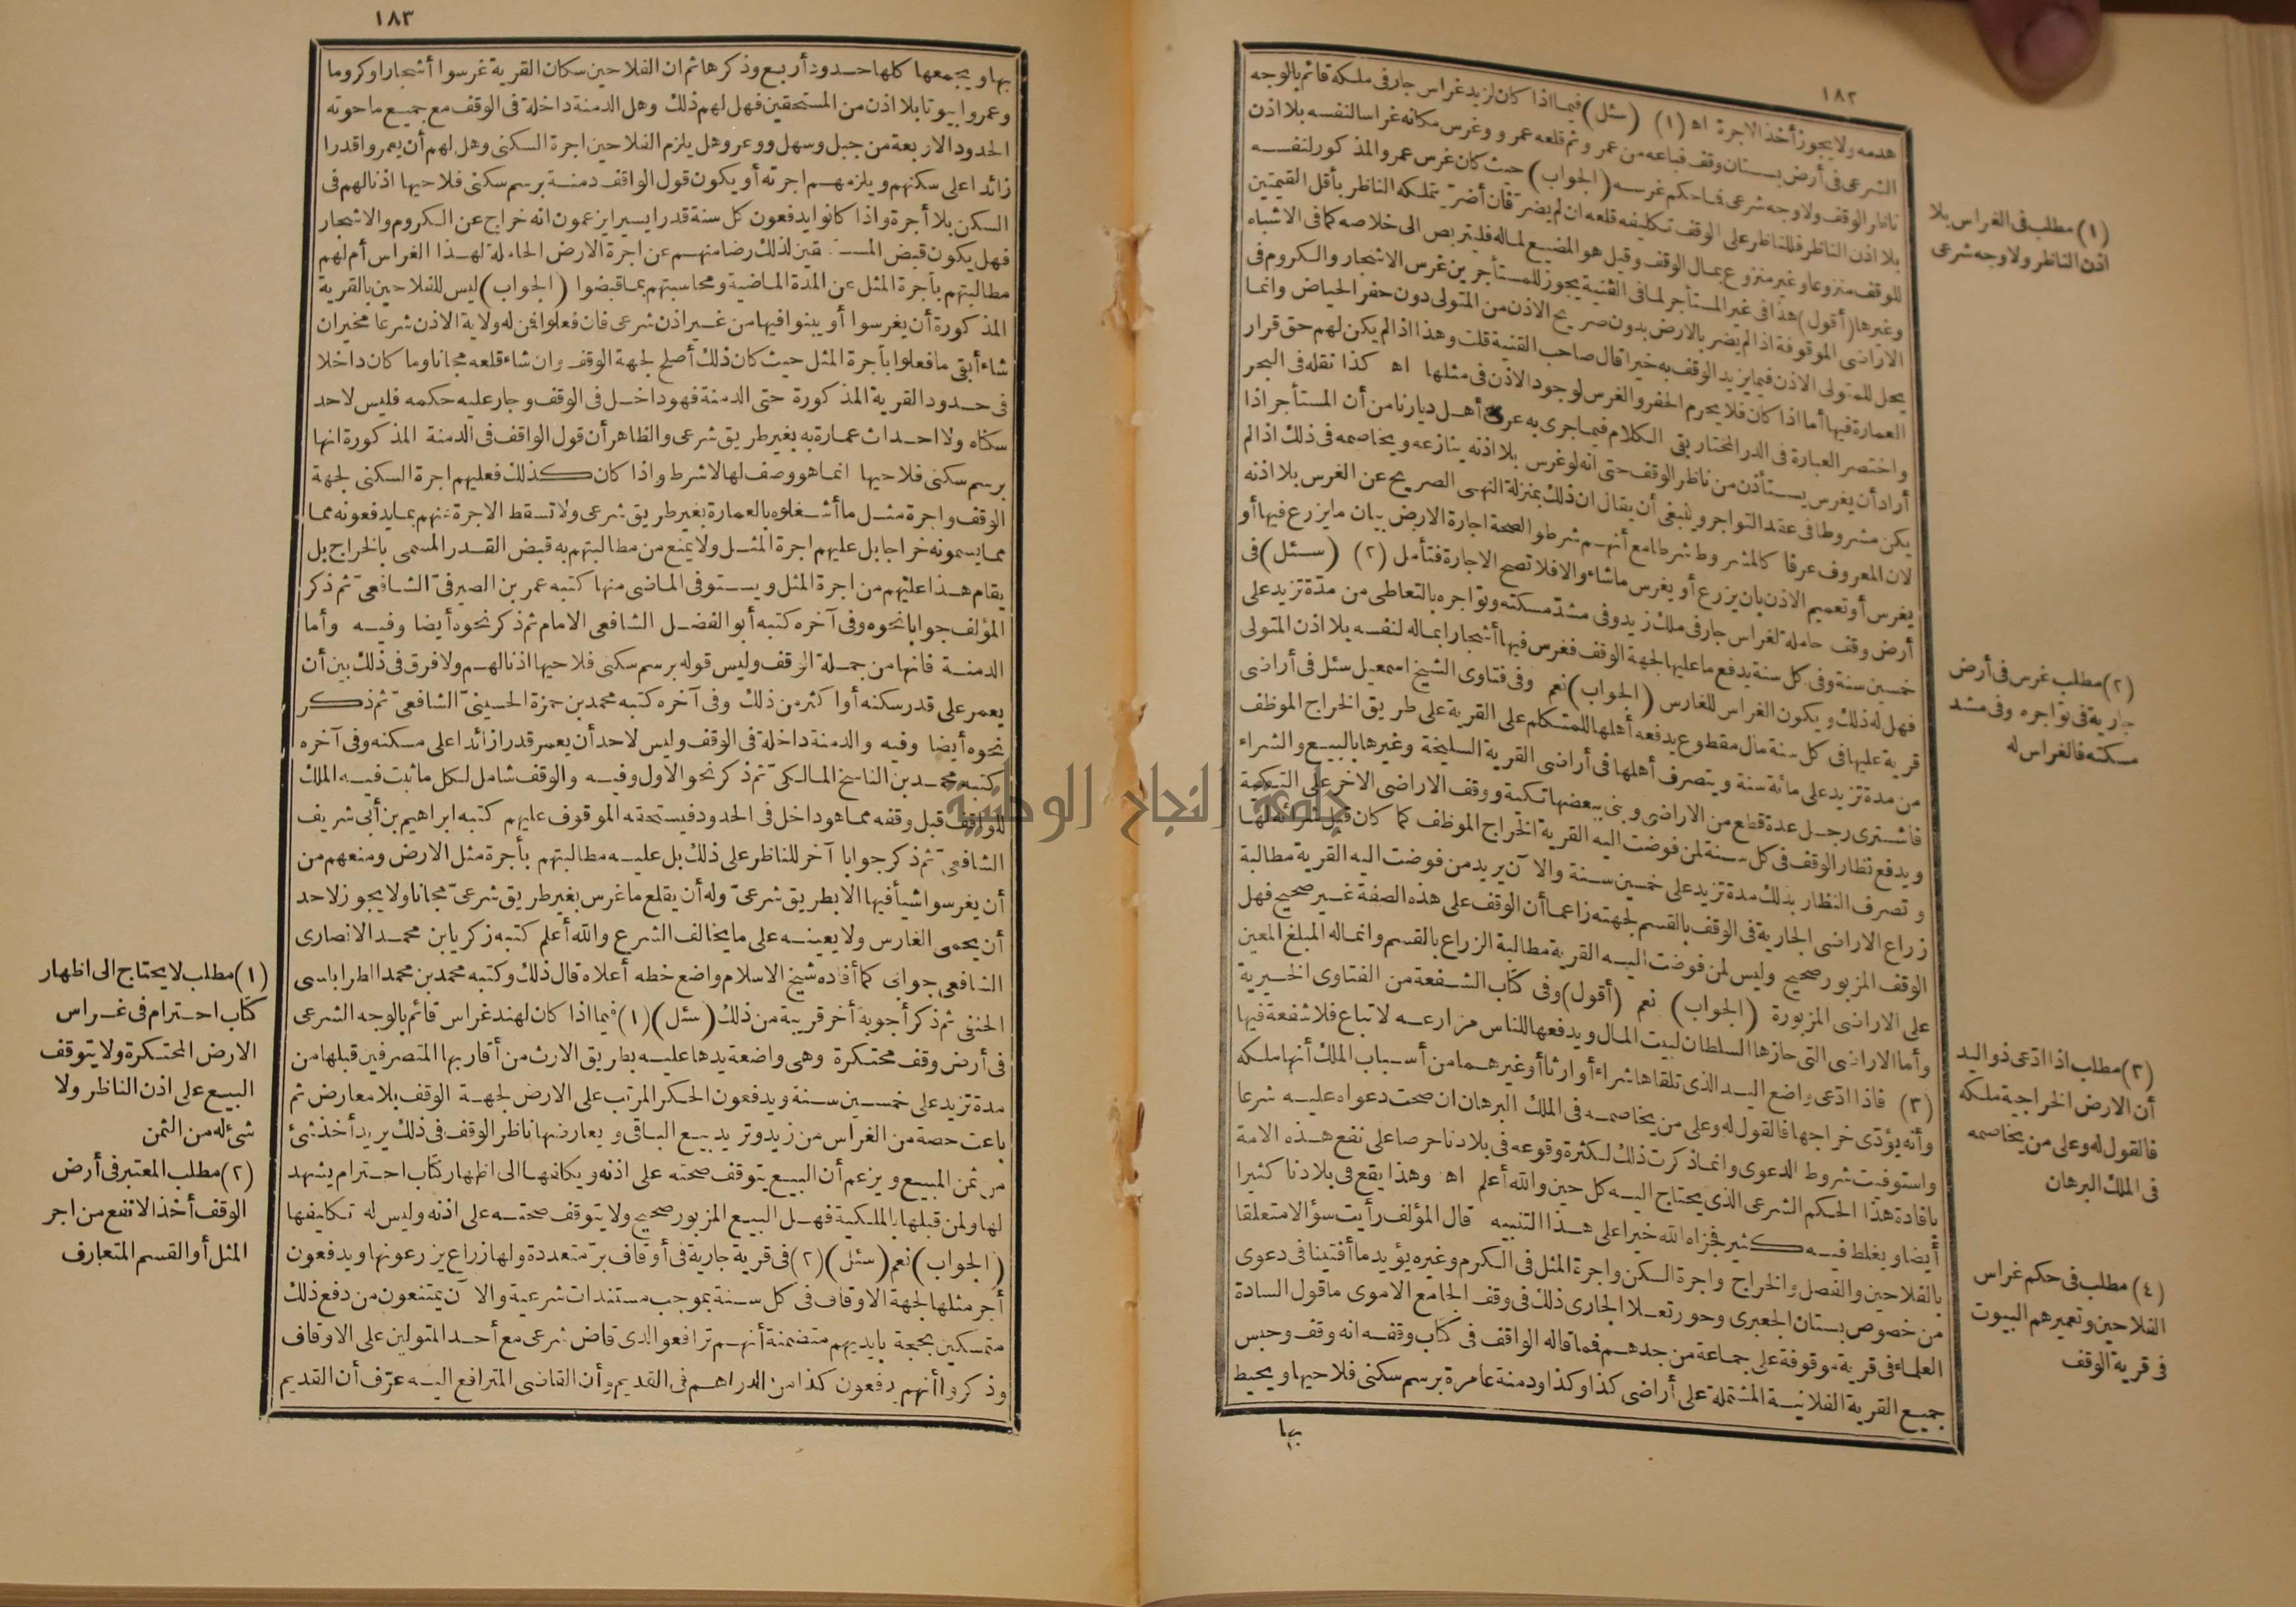 ١٨٢
هدمه ولا يجوز أخذ الاجرة اه (١) (سئل) فيما اذا كان لزيد غراس جار فى ملكه قائم بالوجه
الشرعى فى أرض بستان وقف فباعه من عمرو ثم قلعه عمرو وغرس مكانه غراسا لنفسه بلا اذن
ناظر الوقف ولا وجه شرعى فما حكم غرسه (الجواب) حيث كان غرس عمرو المذكور لنفسه
بلا اذن الناظر فللناظر على الوقف تكليفه قلعه ان لم يضر فان أضر يتملكه الناظر بأقل القيمتين
للوقف منزوعا وغير منزوع بمال الوقف وقيل هو المضيع لماله فليتربص الى خلاصه كما فى الاشباه
وغيرها (أقول) هذا فى غير المستأجر لما فى القنية يجوز للمستأجرين غرس الاشجار والكروم فى
الاراضى الموقوفة اذا لم يضر بالارض بدون صريح الاذن من المتولى دون حفر الحياض وانما
يحل للمتولى الاذن فيما يزيد الوقف به خيرا قال صاحب القنية قلت وهذا اذا لم يكن لهم حق قرار
العمارة فيها أما اذا كان فلا يحرم الحفر والغرس لوجود الاذن فى مثلها اه كذا نقله فى البحر
واختصر العبارة فى الدر المختار بقى الكلام فيما جرى به عرف أهل ديارنا من أن المستأجر اذا
أراد أن يغرس يستأذن من ناظر الوقف حتى انه لو غرس بلا اذنه ينازعه ويخاصمه فى ذلك اذا لم
يكن مشروطا فى عقد التواجر وينبغى أن يقال ان ذلك بمنزلة النهى الصريح عن الغرس بلا اذنه
لان المعروف عرفا كالمشروط شرطا مع أنهم شرطوا لصحة اجارة الارض بيان ما يزرع فيها أو
يغرس أو تعميم الاذن بان يزرع أو يغرس ما شاء والا فلا تصح الاجارة فتأمل (٢) (سئل) فى
أرض وقف حاملة لغراس جار فى ملك زيد وفى مشد مسكته وتواجره بالتعاطى من مدة تزيد على
خمسين سنة وفى كل سنة يدفع ما عليها لجهة الوقف فغرس فيها أشجارا بماله لنفسه بلا اذن المتولى
فهل له ذلك ويكون الغراس للغارس (الجواب) نعم وفى فتاوى الشيخ اسمعيل سئل فى أراضى
قرية عليها فى كل سنة مال مقطوع يدفعه أهلها للمتكلم على القرية على طريق الخراج الموظف
من مدة تزيد على مائة سنة ويتصرف أهلها فى أراضى القرية السليخة وغيرها بالبيع والشراء
فاشترى رجل عدة قطع من الاراضى وبنى ببعضها تكية ووقف الاراضى الاخر على التكية
ويدفع نظار الوقف فى كل سنة لمن فوضت اليه القرية الخراج الموظف كما كان قبل شرائه لها
وتصرف النظار بذلك مدة تزيد على خمسين سنة والآن يريد من فوضت اليه القرية مطالبة
زراع الاراضى الجارية فى الوقف بالقسم لجهته زاعما أن الوقف على هذه الصفة غير صحيح فهل
الوقف المزبور صحيح وليس لمن فوضت اليه القرية مطالبة الزراع بالقسم وانما له المبلغ المعين
على الاراضى المزبورة (الجواب) نعم (أقول) وفى كتاب الشفعة من الفتاوى الخيرية
وأما الاراضى التى حازها السلطان لبيت المال ويدفعها للناس مزارعه لا تباع فلا شفعة فيها
(٣) فاذا ادعى واضع اليد الذى تلقاها شراء أو ارثا أو غيرهما من أسباب الملك أنها ملكه
وأنه يؤدى خراجها فالقول له وعلى من يخاصمه فى الملك البرهان ان صحت دعواه عليه شرعا
واستوفيت شروط الدعوى وانما ذكرت ذلك لكثرة وقوعه فى بلادنا حرصا على نفع هذه الامة
بافادة هذا الحكم الشرعى الذى يحتاج اليه كل حين والله أعلم اه وهذا يقع فى بلادنا كثيرا
أيضا ويغلط فيه كثير فجزاه الله خيرا على هذا التنبيه قال المؤلف رأيت سؤالا متعلقا
بالفلاحين والفصل والخراج واجرة السكن واجرة المثل فى الكرم وغيره يؤيد ما أفتينا فى دعوى
من خصوص بستان الجعبرى وحور تعلا الجارى ذلك فى وقف الجامع الاموى ما قول السادة
العلماء فى قرية موقوفة على جماعة من جدهم فما قاله الواقف فى كتاب وقفه انه وقف وحبس
جميع القرية الفلانية المشتملة على أراضى كذا وكذا ودمنة عامرة برسم سكنى فلاحيها ويحيط
بها
(١) مطلب فى الغراس بلا
اذن الناظر ولا وجه شرعى
(٢) مطلب غرس فى أرض
جارية فى تواجره وفى مشد
مسكته فالغراس له
(٣) مطلب اذا ادعى ذو اليد
أن الارض الخراجية ملكه
فالقول له وعلى من يخاصمه
فى الملك البرهان
(٤) مطلب فى حكم غراس
الفلاحين وتعميرهم البيوت
فى قرية الوقف
١٨٣
بها ويجمعها كلها حدود أربع وذكرها ثم ان الفلاحين سكان القرية غرسوا أشجارا وكروما
وعمروا بيوتا بلا اذن من المستحقين فهل لهم ذلك وهل الدمنة داخلة فى الوقف مع جميع ما حوته
الحدود الاربعة من جبل وسهل ووعر وهل يلزم الفلاحين اجرة السكنى وهل لهم أن يعمروا قدرا
زائدا على سكنهم ويلزمهم اجرته أو يكون قول الواقف دمنة برسم سكنى فلاحيها اذنا لهم فى
السكن بلا أجرة واذا كانوا يدفعون كل سنة قدرا يسيرا يزعمون انه خراج عن الكروم والاشجار
فهل يكون قبض المستحقين لذلك رضا منهم عن اجرة الارض الحاملة لهذا الغراس أم لهم
مطالبتهم بأجرة المثل عن المدة الماضية ومحاسبتهم بما قبضوا (الجواب) ليس للفلاحين بالقرية
المذكورة أن يغرسوا أو يبنوا فيها من غير اذن شرعى فان فعلوا فمن له ولاية الاذن شرعا مخير ان
شاء أبقى ما فعلوا بأجرة المثل حيث كان ذلك أصلح لجهة الوقف وان شاء قلعه مجانا وما كان داخلا
فى حدود القرية المذكورة حتى الدمنة فهو داخل فى الوقف وجار عليه حكمه فليس لاحد
سكناه ولا احداث عمارة به بغير طريق شرعى والظاهر أن قول الواقف فى الدمنة المذكورة انها
برسم سكنى فلاحيها انما هو وصف لها لا شرط واذا كان كذلك فعليهم اجرة السكنى لجهة
الوقف واجرة مثل ما أشغلوه بالعمارة بغير طريق شرعى ولا تسقط الاجرة عنهم بما يدفعونه مما
مما يسمونه خراجا بل عليهم اجرة المثل ولا يمنع من مطالبتهم به قبض القدر المسمى بالخراج بل
يقام هذا عليهم من اجرة المثل ويستوفى الماضى منها كتبه عمر بن الصيرفى الشافعى ثم ذكر
المؤلف جوابا نحوه وفى آخره كتبه أبو الفضل الشافعى الامام ثم ذكر نحوه أيضا وفيه وأما
الدمنة فانها من جملة الوقف وليس قوله برسم سكنى فلاحيها اذنا لهم ولا فرق فى ذلك بين أن
يعمر على قدر سكنه أو أكثر من ذلك وفى آخره كتبه محمد بن حمزة الحسينى الشافعى ثم ذكر
نحوه أيضا وفيه والدمنة داخلة فى الوقف وليس لاحد أن يعمر قدرا زائدا على مسكنه وفى آخره
كتبه محمد بن الناسخ المالكى ثم ذكر نحو الاول وفيه والوقف شامل لكل ما ثبت فيه الملك
للواقف قبل وقفه مما هو داخل فى الحدود فيستحقه الموقوف عليهم كتبه ابراهيم بن أبى شريف
الشافعى ثم ذكر جوابا آخر للناظر على ذلك بل عليه مطالبتهم بأجرة مثل الارض ومنعهم من
أن يغرسوا شيأ فيها الا بطريق شرعى وله أن يقلع ما غرس بغير طريق شرعى مجانا ولا يجوز لاحد
أن يحمى الغارس ولا يعينه على ما يخالف الشرع والله أعلم كتبه زكريا بن محمد الانصارى
الشافعى جوابى كما أفاده شيخ الاسلام واضع خطه أعلاه قال ذلك وكتبه محمد بن محمد الطرابلسى
الحنفى ثم ذكر أجوبة أخر قريبة من ذلك (سئل) (١) فيما اذا كان لهند غراس قائم بالوجه الشرعى
فى أرض وقف محتكرة وهى واضعة يدها عليه بطريق الارث من أقاربها المتصرفين قبلها من
مدة تزيد على خمسين سنة ويدفعون الحكر المرتب على الارض لجهة الوقف بلا معارض ثم
باعت حصة من الغراس من زيد وتريد بيع الباقى ويعارضها ناظر الوقف فى ذلك يريد أخذ شئ
من ثمن المبيع ويزعم أن البيع يتوقف صحته على اذنه ويكلفها الى اظهار كتاب احترام يشهد
لها ولمن قبلها بالملكية فهل البيع المزبور صحيح ولا يتوقف صحته على اذنه وليس له تكليفها
(الجواب) نعم (سئل) (٢) فى قرية جارية فى أوقاف بر متعددة ولها زراع يزرعونها ويدفعون
أجر مثلها لجهة الاوقاف فى كل سنة بموجب مستندات شرعية والآن يمتنعون من دفع ذلك
متمسكين بحجة بايديهم متضمنة أنهم ترافعوا لدى قاض شرعى مع أحد المتولين على الاوقاف
وذكروا أنهم يدفعون كذا من الدراهم فى القديم وأن القاضى المترافع اليه عرف أن القديم
(١) مطلب لا يحتاج الى اظهار
كتاب احترام فى غراس
الارض المحتكرة ولا يتوقف
البيع على اذن الناظر ولا
شئ له من الثمن
(٢) مطلب المعتبر فى أرض
الوقف أخذ الانفع من اجر
المثل أو القسم المتعارف
جامعة النجاح الوطنية